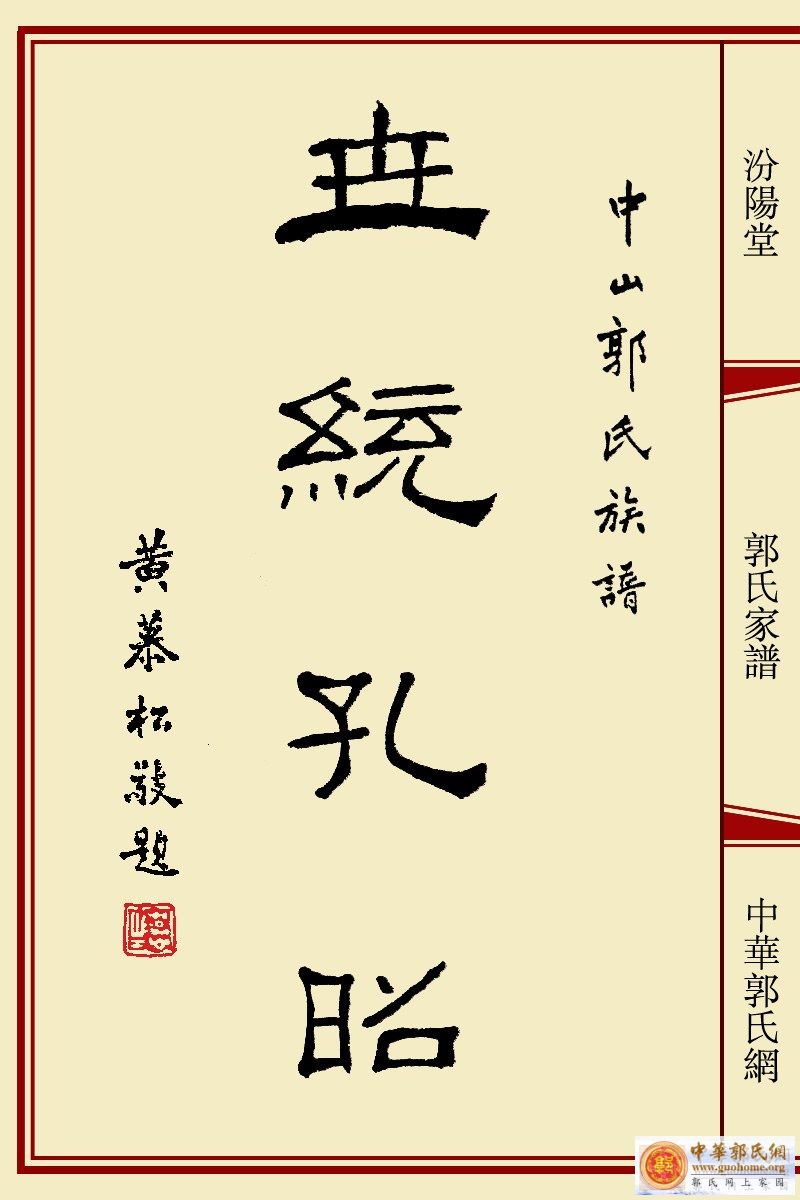 汾陽堂
郭氏家譜
中華郭氏網
中山郭氏族譜
世統孔昭
黄慕松敬題
中華郭氏網
www.guohome.org
郭氏网上家园